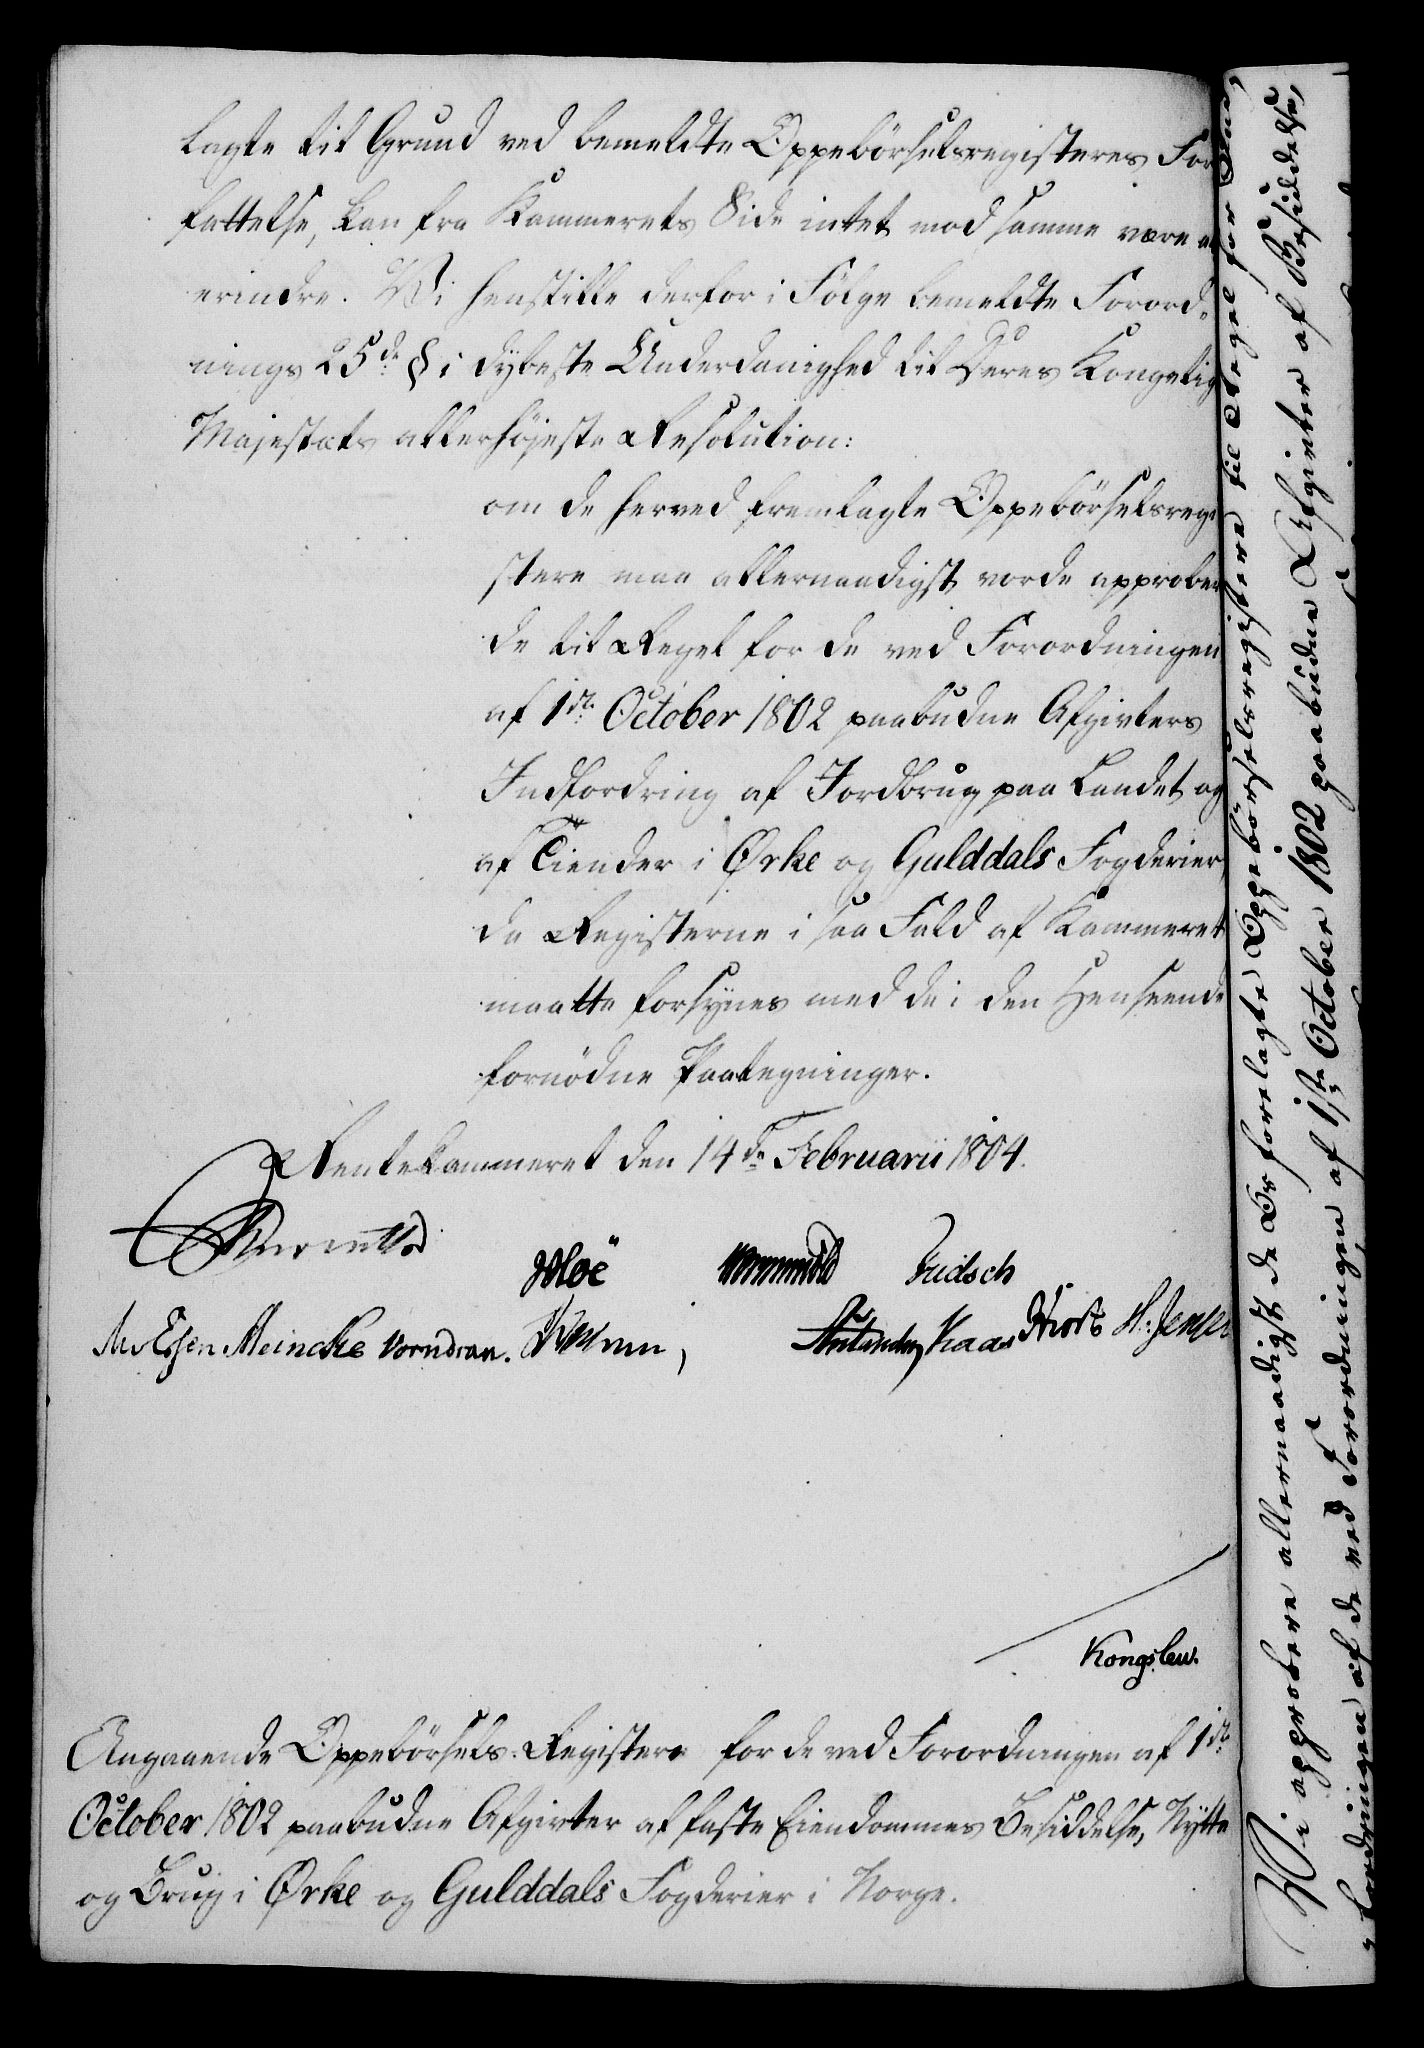 lagte til Grund ved bemeldte Oppebörselsregisteres For
fattelse, kan fra Kammerets Side intet mod samme være at
erindre. Vi henstille derfor i Fölge bemeldte Forord-
nings 25de § i dybeste Underdanighed til Deres Kongelig
Majestæts allerhöjeste Resolution:
om de herved fremlagte Oppebörselsregi
stere maa allernaadigst vorde approbere
de til Regel for de ved Forordningen
af 1ste October 1802 paabudne Afgivters
Indfordring af Jordbrug paa Landet og
af Tiender i Ørke og Gulddals Fogderier,
da Registerne i saa Fald af Kammeret
maatte forsynes med de i den Henseende
fornödne Paategninger.
Rentekammeret den 14de Februarii 1804.
Reventlow
Wloë Wormskiold Fridsch
M. Essen Meincke Vorndran. Kaas Hiort H: Jensen
Kongslew.
Angaaende Oppebörsels-Registere for de ved Forordningen af 1ste
October 1802 paabudne Afgivter af faste Eiendommes Besiddelse, Nytte
og Brug i Ørke og Gulddals Fogderier i Norge.
Vi approbere allernaadigst de Os forelagte Oppebörselsregistere til Regel for Ind
fordringen af de ved Forordningen af 1ste October 1802 paabudne Afgivter af Besiddelse,